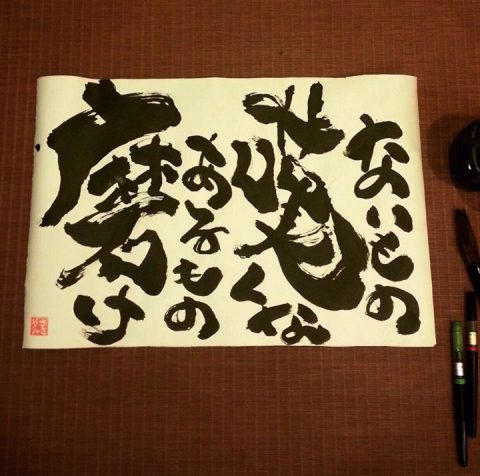 ないもの
嘆くな
あるもの
磨け